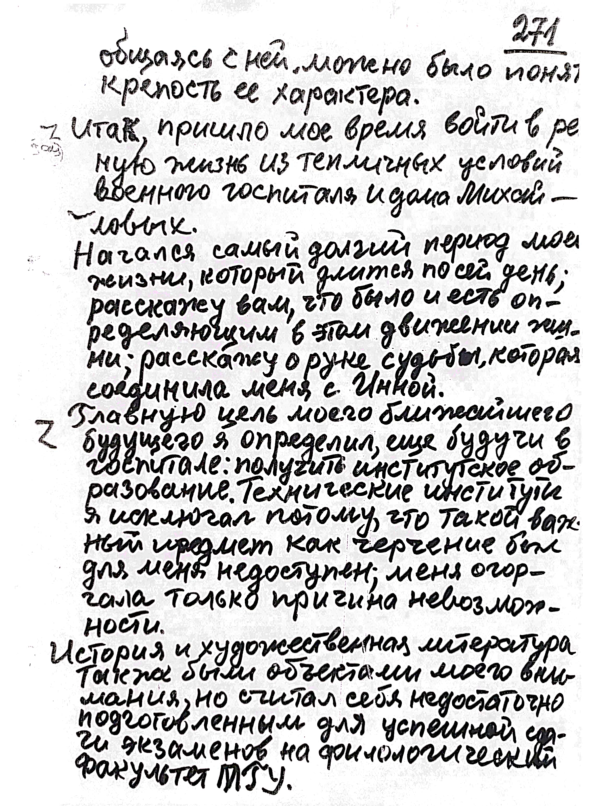 271
общаясь с ней, можно было понят
крепость ее характера.
Z Итак, пришло мое время войти в ре
ную жизнь из тепличных условий
военного госпиталя и дома Михай–
ловых.
Начался самый долгий период мое
жизни, который длится по сей день;
расскажу вам, что было и есть оп–
ределяющим в этом движении жиз–
ни; расскажу о руке судьбы, которая
соединила меня с Инной.
Z Главную цель моего ближайшего
будущего я определил, еще будучи в
госпитале: получить институтское об–
разование. Технические институты
я исключал потому, что такой важ–
ный предмет как черчение был
для меня недоступен; меня огор–
чала только причина невозмож–
ности.
История и художественная литература
также были объектами моего вни–
мания, но считал себя недостаточно
подготовленным для успешной сда–
чи экзаменов на филологический
факультет МГУ.